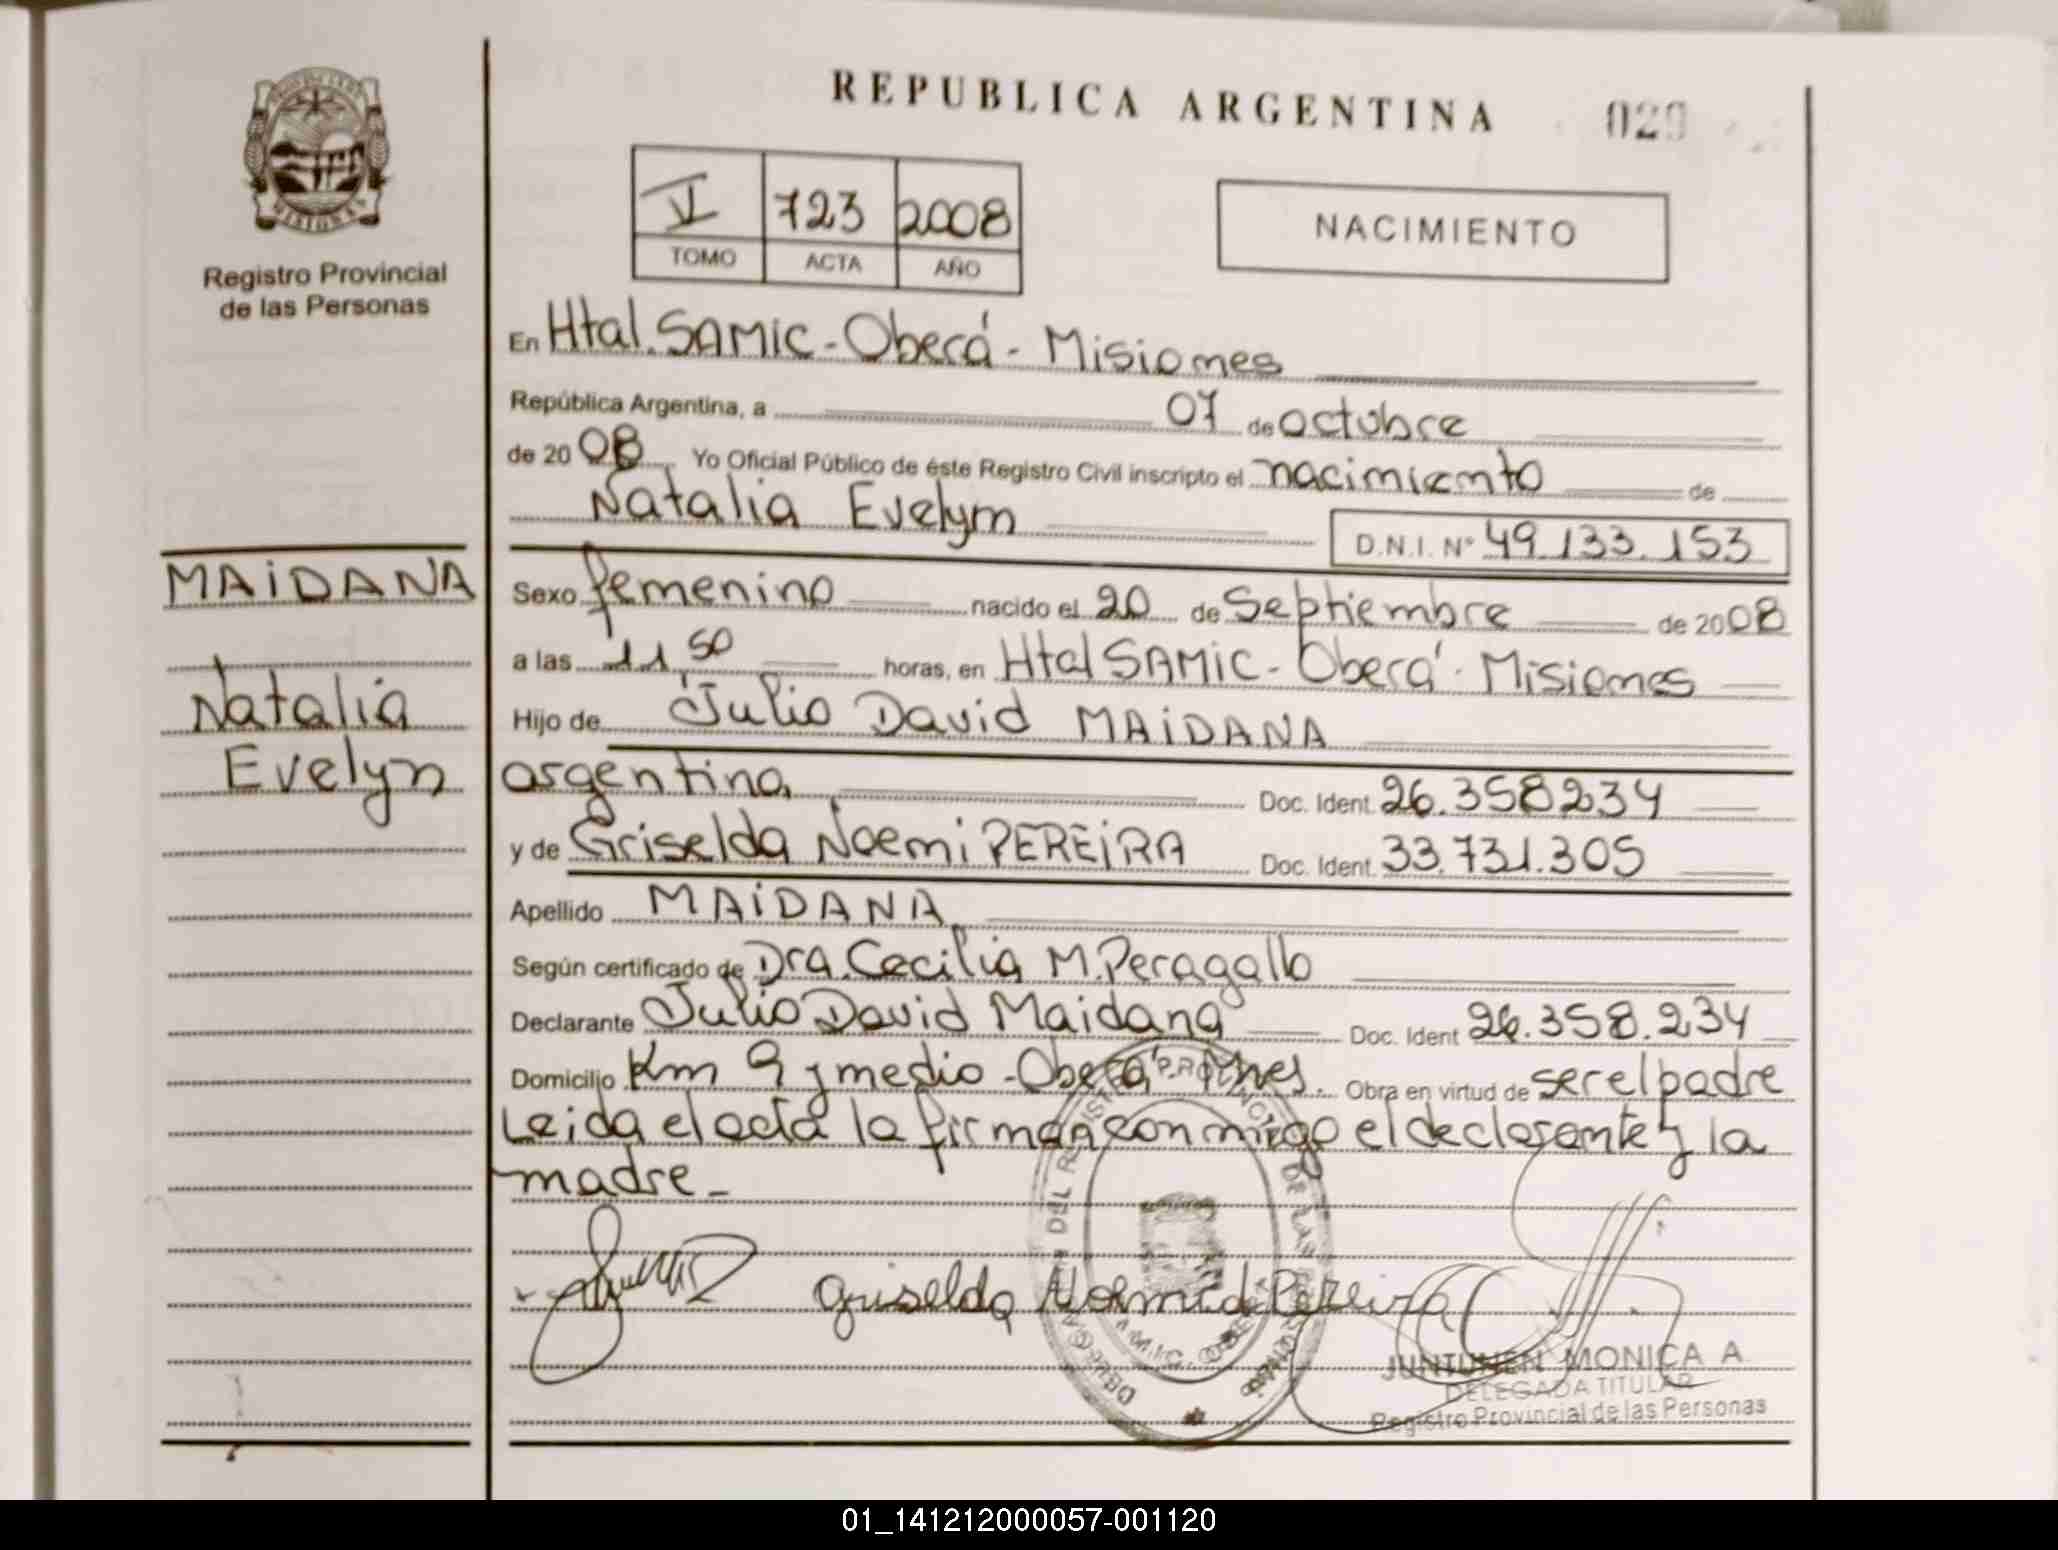 REPUBLICA ARGENTINA 029
PROVINCIA DE
MISIONES
Registro Provincial
de las Personas
V 723 2008
TOMO ACTA AÑO
NACIMIENTO
En Htal. SAMIC - Oberá - Misiones
República Argentina, a 07 de octubre
de 2008 Yo Oficial Público de éste Registro Civil inscripto el nacimiento de
Natalia Evelyn D.N.I. Nº 49.133.153
MAIDANA
Natalia
Evelyn
Sexo femenino nacido el 20 de Septiembre de 2008
a las 11,50 horas, en Htal SAMIC - Oberá - Misiones
Hijo de Julio David MAIDANA
argentina Doc. Ident. 26.358234
y de Griselda Noemi PEREIRA Doc. Ident. 33.731.305
Apellido MAIDANA
Según certificado de Dra. Cecilia M. Peragallo
Declarante Julio David Maidana Doc. Ident 26.358.234
Domicilio Km 9 y medio - Oberá Mnes. Obra en virtud de ser el padre
Leida el acta la firman conmigo el declarante y la
madre -
Griselda Noemi Pereira
DELEGACION DEL REGISTRO PROVINCIAL DE LAS PERSONAS
JUNTUNEN MONICA A
DELEGADA TITULAR
Registro Provincial de las Personas
01_141212000057-001120